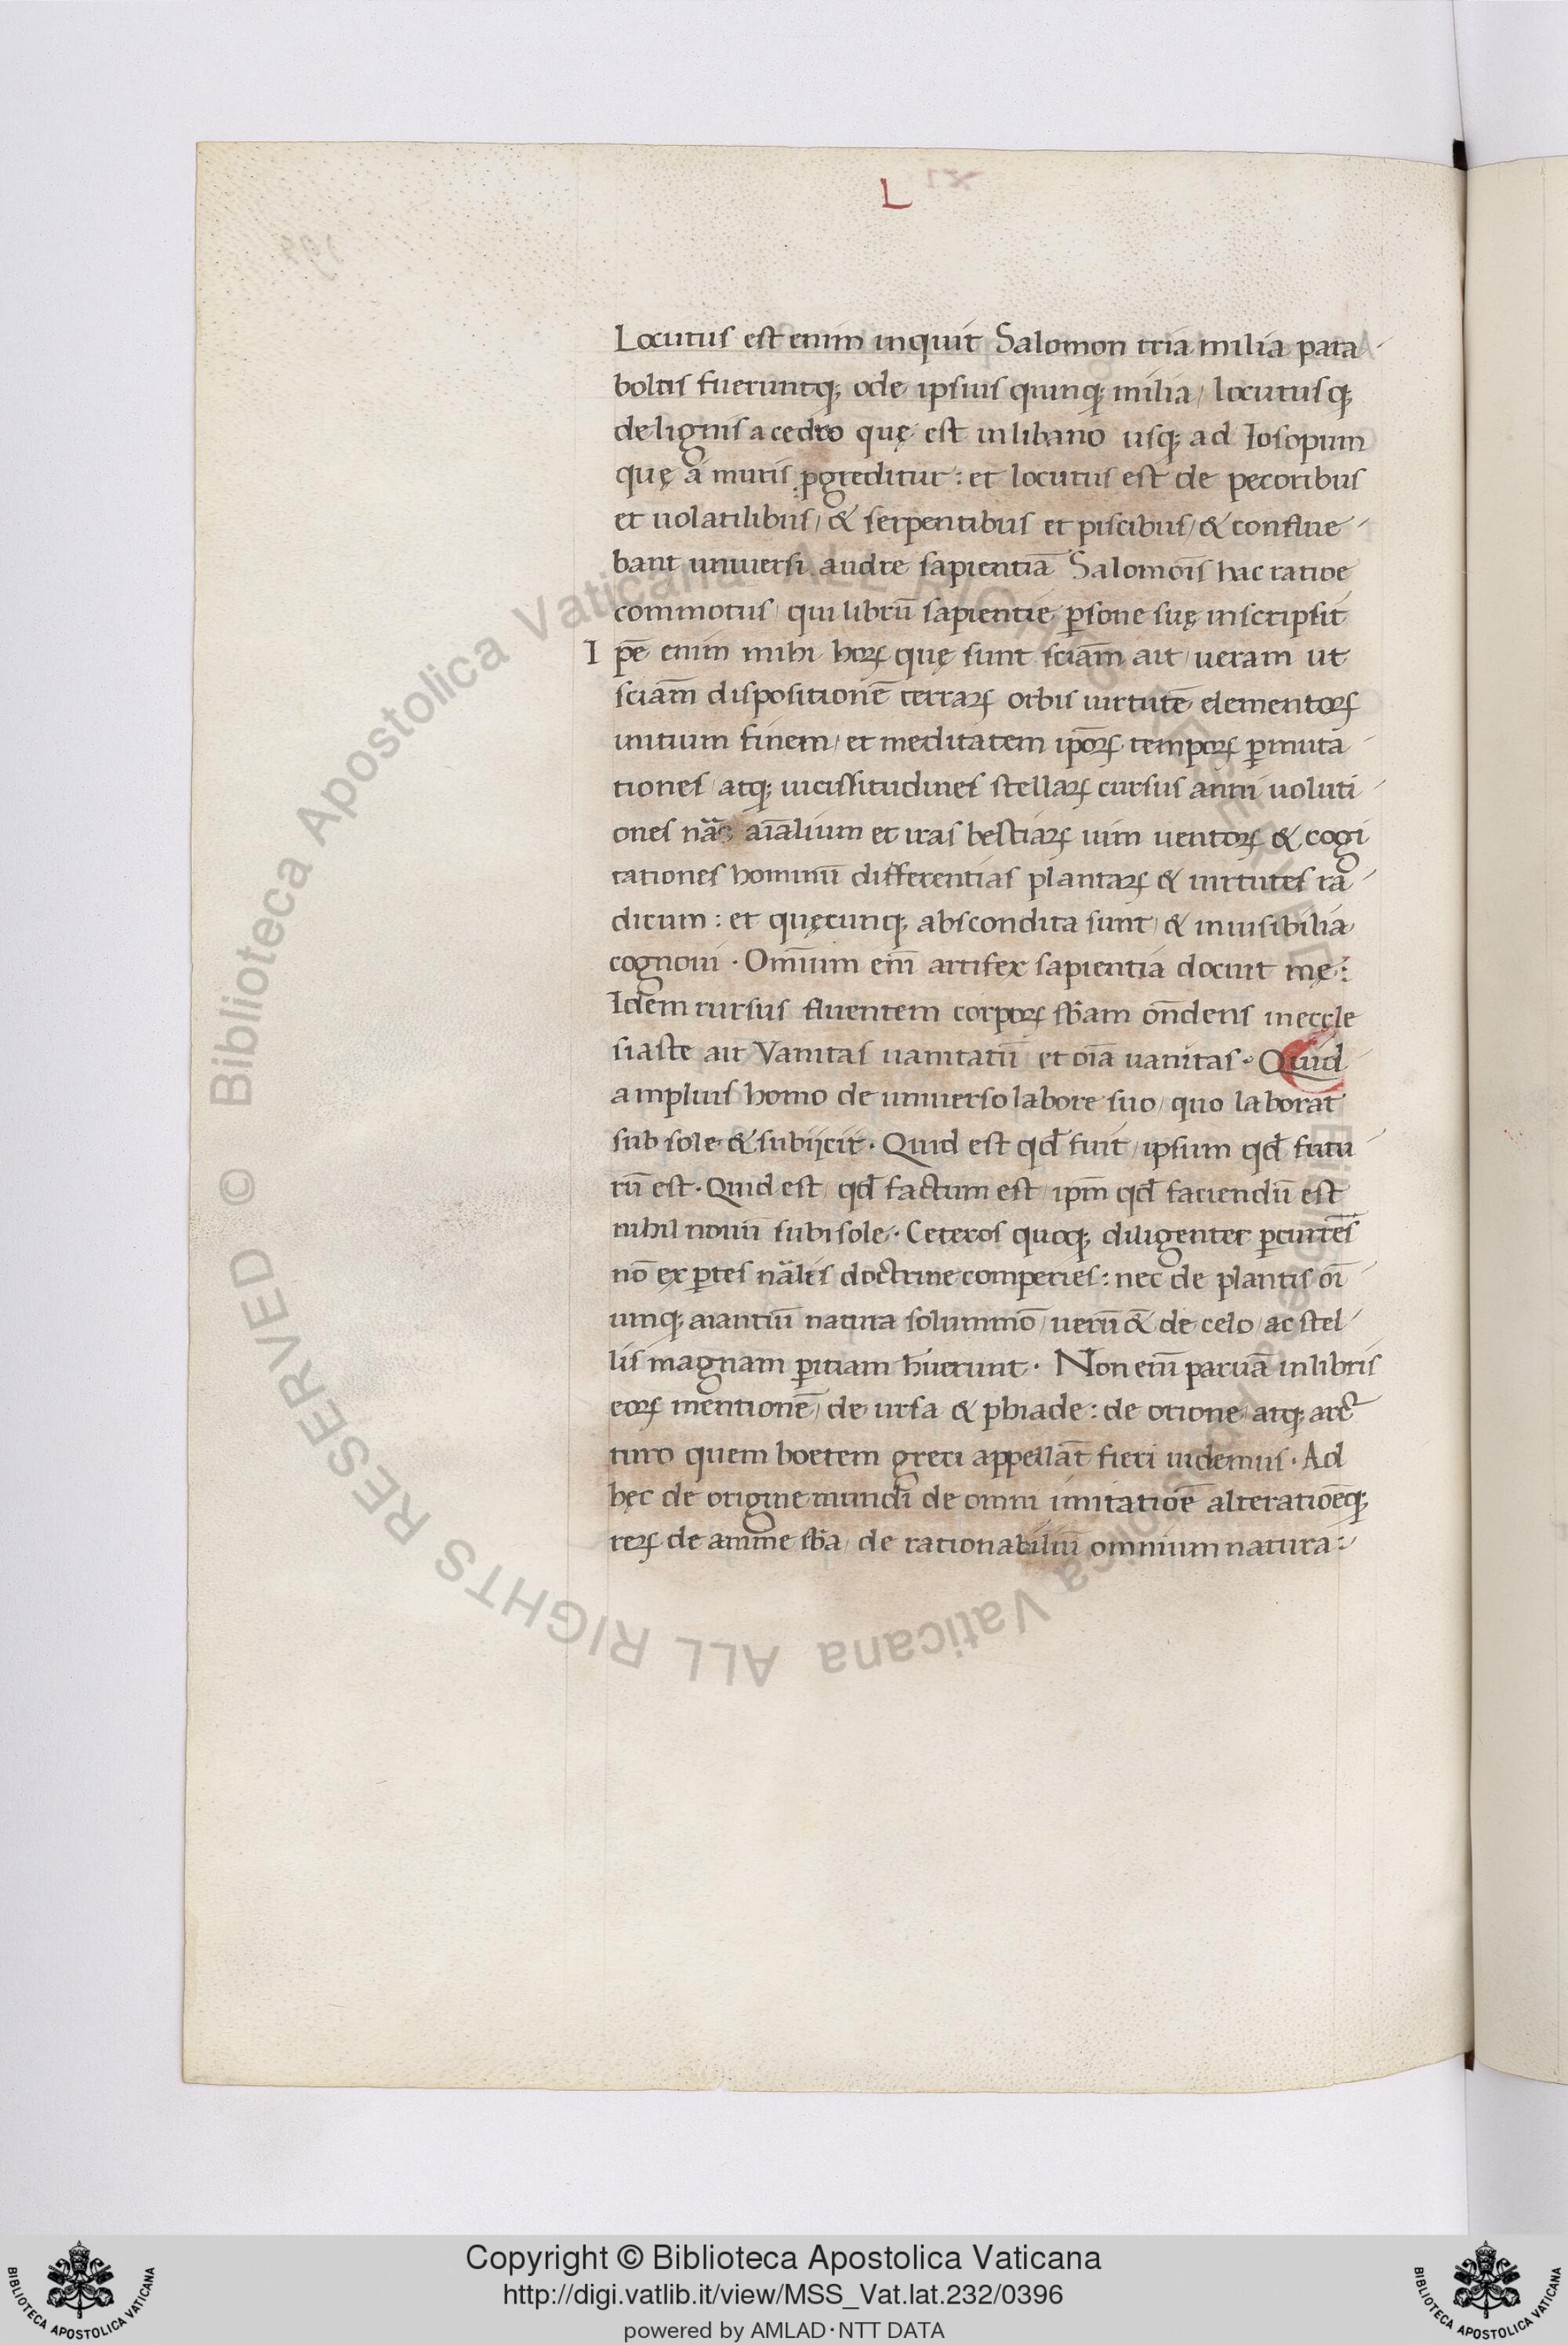 L
Locutus est enim inquit Salomon tria milia para
bolas fueruntq; ode ipsius quinq; milia / locutusq;
de lignis a cedro quę est in libano usq; ad Iosopum
quę a muris ꝓgreditur : et locutus est de pecoribus
et uolatilibus / & serpentibus et piscibus / & conflue
bant uniuersi audire sapientiā Salomōis hac ratioe
commotus / qui librū sapientie ꝑsone suę inscripsit
Ipē enim mihi hoꝝ quę sunt sciām ait / ueram ut
sciām dispositionē terraꝝ orbis uirtutē elementoꝝ
initium finem / et meditatem ipōꝝ tempoꝝ ꝑmuta
tiones / atq; uicissitudines stellaꝝ cursus anni uoluti
ones nās aīalium et iras bestiaꝝ uim uentoꝝ & cogi
tationes hominū differentias plantaꝝ & uirtutes ra
dicum : et quęcunq; abscondita sunt / & inuisibilia
cognoui · Omīum enī artifex sapientia docuit mę :
Idem rursus fluentem corpoꝝ sb̄am on̄dens in eccle
siaste ait Vanitas uanitatū et oīa uanitas · Quid
amplius homo de uniuerso labore suo / quo laborat
sub sole & subijcit · Quid est qd̄ fuit / ipsum qd̄ futu
rū est · Quid est / qd̄ factum est / ipm̄ qd̄ faciendū est
nihil nouū sub sole · Ceteros quoq; diligenter ꝑcurrēs
nō exꝑtes nālis doctrine comperies : nec de plantis oī
umq; aiantiū natura solummō / uerū & de celo / ac stel
lis magnam ꝑitiam hūerunt · Non enī paruā in libris
eoꝝ mentionē / de ursa & pliade : de orione / atq; arc
turo quem boetem greci appellāt fieri uidemus · Ad
hęc de origine mundi de omni imitatioē alteratioēq;
reꝝ de anime sb̄a / de rationabiliū omnium natura :
Copyright © Biblioteca Apostolica Vaticana
http://digi.vatlib.it/view/MSS_Vat.lat.232/0396
powered by AMLAD·NTT DATA
BIBLIOTECA APOSTOLICA VATICANA
BIBLIOTECA APOSTOLICA VATICANA
Biblioteca Apostolica Vaticana ALL RIGHTS RESERVED ©